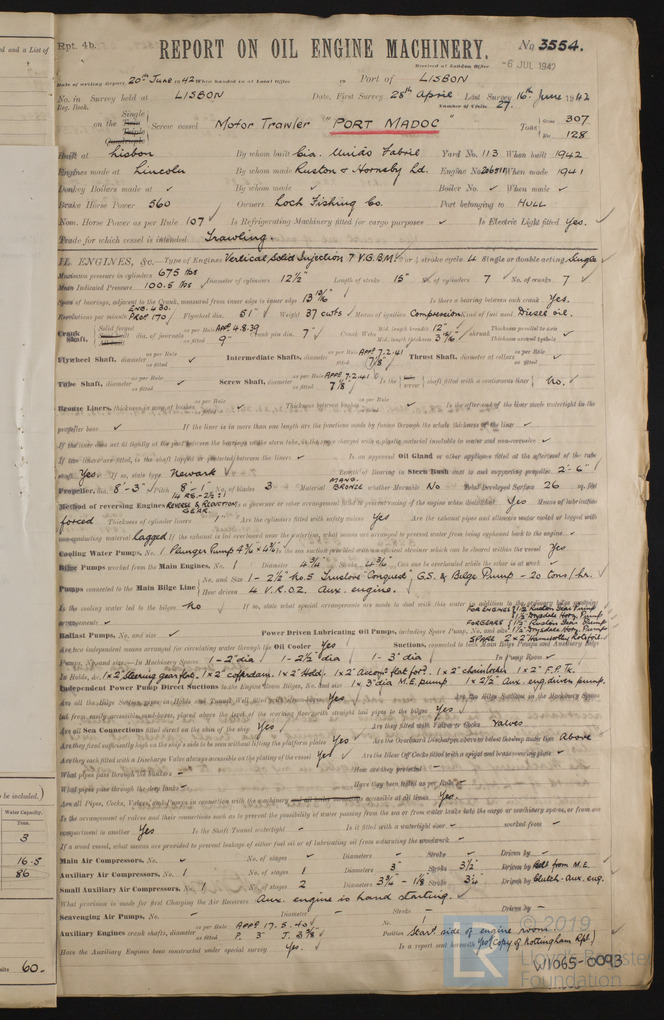 d and a List of
Rpt. 4b.
REPORT ON OIL ENGINE MACHINERY.
No 3554.
Received at London Office
-6 JUL 1942
Date of writing Report 20th June 1942 When handed in at Local Office
Port of LISBON
No. in Survey held at LISBON Date, First Survey 28th April Last Survey 16th June 1942
Reg. Book.
Number of Visits 27.
Single
on the Twin Screw vessel Motor Trawler "PORT MADOC" Tons Gross 307
Triple
Quadruple
Net 128
Built at Lisbon By whom built Cia. União Fabril Yard No. 113 When built 1942
Engines made at Lincoln By whom made Ruston & Hornsby Ld. Engine No. When made 1941
Donkey Boilers made at ✓ By whom made ✓ Boiler No. ✓ When made ✓
Brake Horse Power 560 Owners Loch Fishing Co. Port belonging to HULL
Nom. Horse Power as per Rule 107 Is Refrigerating Machinery fitted for cargo purposes ✓ Is Electric Light fitted Yes.
Trade for which vessel is intended Trawling.
IL ENGINES, &c. Type of Engines Vertical Solid Injection 7 V.G.B.M. 2 or 4 stroke cycle 4 Single or double acting Single
Maximum pressure in cylinders 675 lbs Diameter of cylinders 12½" Length of stroke 15" No. of cylinders 7 No. of cranks 7
Mean Indicated Pressure 100.5 lbs
Span of bearings, adjacent to the Crank, measured from inner edge to inner edge 13 13/16" Is there a bearing between each crank Yes.
Revolutions per minute ENG. 430. PROP. 170 Flywheel dia. 51" Weight 37 cwts Means of ignition Compression Kind of fuel used Diesel oil.
Crank Shaft, Solid forged dia. of journals as per Rule APP. 4.8.39 as fitted 9" Crank pin dia. 7" Crank Webs Mid. length breadth 12" Mid. length thickness 3 15/16" shrunk Thickness parallel to axis Thickness around eyehole
Flywheel Shaft, diameter as per Rule as fitted ✓ Intermediate Shafts, diameter as per Rule APP. 7.2.41 as fitted 7⅛" Thrust Shaft, diameter at collars as per Rule as fitted ✓
Tube Shaft, diameter as per Rule as fitted ✓ Screw Shaft, diameter as per Rule APP. 7.2.41 as fitted 7⅛" Is the screw shaft fitted with a continuous liner No.
Bronze Liners, thickness in way of bushes as per Rule as fitted ✓ Thickness between bushes ✓ Is the after end of the liner made watertight in the
propeller boss ✓ If the liner is in more than one length are the junctions made by fusion through the whole thickness of the liner ✓
If the liner does not fit tightly at the part between the bearings in the stern tube, is the space charged with a plastic material insoluble in water and non-corrosive ✓
If two liners are fitted, is the shaft lapped or protected between the liners ✓ Is an approved Oil Gland or other appliance fitted at the after end of the tube
shaft Yes. If so, state type Newark Length of Bearing in Stern Bush next to and supporting propeller 2'-6"
Propeller, dia. 8'-3" Pitch 8'-1" No. of blades 3 Material MANG. BRONZE whether Moveable No Total Developed Surface 26 sq. feet
Method of reversing Engines REVERSE & REDUCTION GEAR. Is a governor or other arrangement fitted to prevent racing of the engine when declutched Yes Means of lubrication
forced Thickness of cylinder liners 1" Are the cylinders fitted with safety valves Yes Are the exhaust pipes and silencers water cooled or lagged with
non-conducting material Lagged If the exhaust is led overboard near the waterline, what means are arranged to prevent water being syphoned back to the engine ✓
Cooling Water Pumps, No. 1 Plunger Pump 4¾" x 4¾" Is the sea suction provided with an efficient strainer which can be cleared within the vessel Yes
Bilge Pumps worked from the Main Engines, No. 1 Diameter 4¾" Stroke 4¾" Can one be overhauled while the other is at work ✓
Pumps connected to the Main Bilge Line No. and Size 1 - 2½" No.5 Truslove "Conquest" G.S. & Bilge Pump - 20 tons/hr.
How driven 4 V.R.O.Z. Aux. engine.
Is the cooling water led to the bilges No If so, state what special arrangements are made to deal with this water in addition to the ordinary bilge pumping
arrangements ✓
Ballast Pumps, No. and size ✓ Power Driven Lubricating Oil Pumps, including Spare Pump, No. and size FOR ENGINES 1½ Ruston Gear Pump
FOR GEARS
SPARE
Are two independent means arranged for circulating water through the Oil Cooler Yes Suctions, connected to both Main Bilge Pumps and Auxiliary Bilge
Pumps, No. and size:—In Machinery Spaces 1 - 2" dia 1 - 2½" dia 1 - 3" dia In Pump Room ✓
In Holds, &c. 1x2" steering gear flat. 1x2" cofferdam. 1x2" Hold. 1x2" Accom. flat for'd. 1x2" chainlocker. 1x2" F.P. Tk.
Independent Power Pump Direct Suctions to the Engine Room Bilges, No. and size 1 x 3" dia M.E. pump 1 x 2½" Aux. eng. driven pump.
Are all the Bilge Suction pipes in Holds and Tunnel Well fitted with strum-boxes Yes Are the Bilge Suctions in the Machinery Spaces
led from easily accessible mud-boxes, placed above the level of the working floor, with straight tail pipes to the bilges Yes
Are all Sea Connections fitted direct on the skin of the ship Yes Are they fitted with Valves or Cocks Valves
Are they fixed sufficiently high on the ship's side to be seen without lifting the platform plates Yes Are the Overboard Discharges above or below the deep water line Above
Are they each fitted with a Discharge Valve always accessible on the plating of the vessel Yes Are the Blow Off Cocks fitted with a spigot and brass covering plate ✓
What pipes pass through the bunkers — How are they protected —
What pipes pass through the deep tanks — Have they been tested as per Rule —
Are all Pipes, Cocks, Valves, and Pumps in connection with the machinery accessible at all times Yes.
Is the arrangement of valves and their connections such as to prevent the possibility of water passing from the sea or from water tanks into the cargo or machinery spaces, or from one
compartment to another Yes Is the Shaft Tunnel watertight — Is it fitted with a watertight door — worked from —
If a wood vessel, what means are provided to prevent leakage of either fuel oil or of lubricating oil from saturating the woodwork —
Main Air Compressors, No. ✓ No. of stages ✓ Diameters — Stroke — Driven by —
Auxiliary Air Compressors, No. 1 No. of stages 1 Diameters 3" Stroke 3½" Driven by Belt from M.E.
Small Auxiliary Air Compressors, No. 1 No. of stages 2 Diameters 3¾" - 1⅛" Stroke 3¼" Driven by Clutch - Aux. eng.
What provision is made for first Charging the Air Receivers Aux. engine is hand starting.
Scavenging Air Pumps, No. — Diameter — Stroke — Driven by —
Auxiliary Engines crank shafts, diameter as per Rule APP. 17.5.40 as fitted P. 3" J. 3⅜" No. 1
Position Star'd side of engine room.
Have the Auxiliary Engines been constructed under special survey Yes. Is a report sent herewith Yes (Copy of Nottingham Rpt.)
W1065-0093
© 2019
Lloyd's Register
Foundation
LR
be included.)
Water Capacity.
Tons.
3
16.5
86
60.